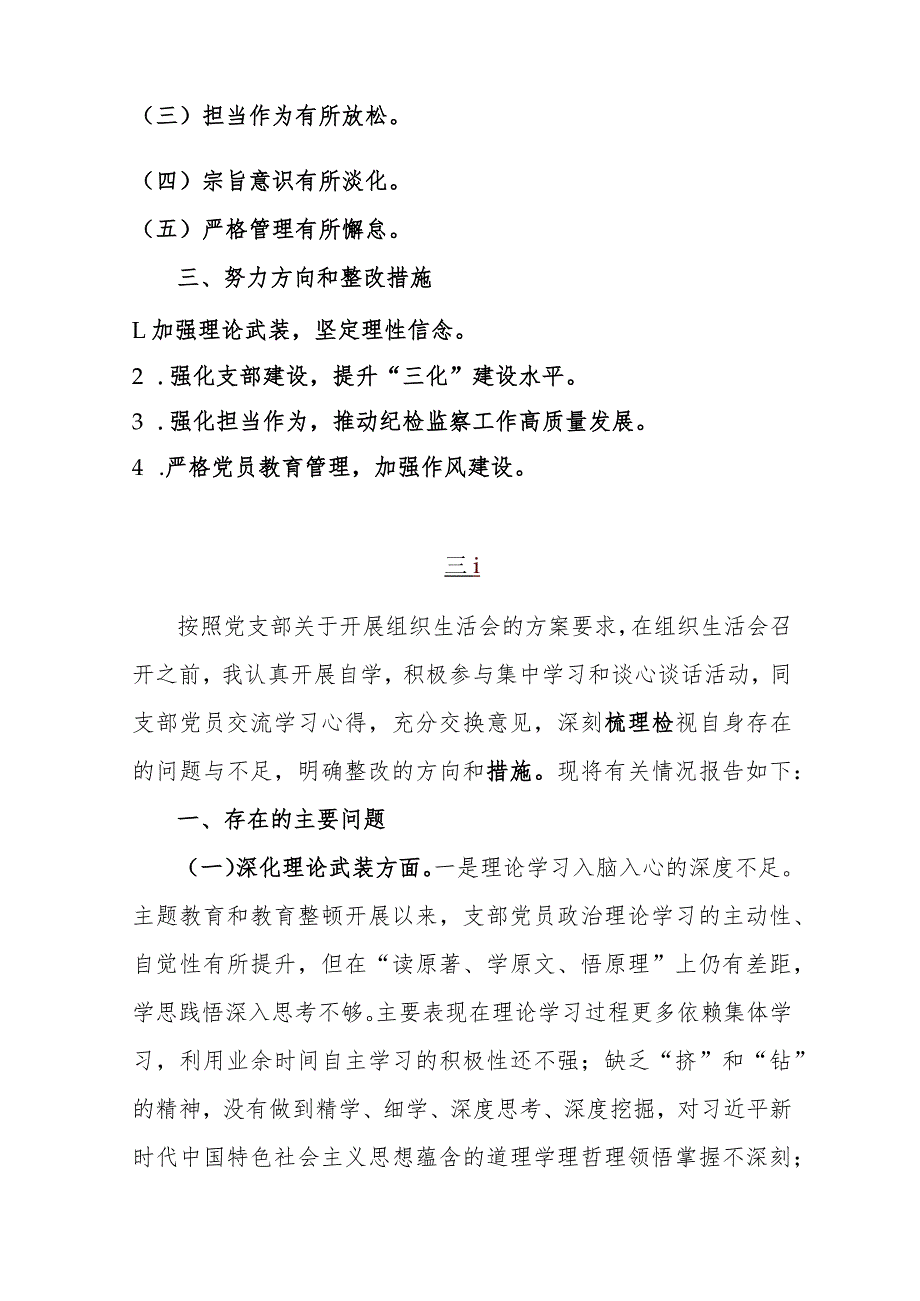 （三）担当作为有所放松。
（四）宗旨意识有所淡化。
（五）严格管理有所懈怠。
三、努力方向和整改措施
L加强理论武装，坚定理性信念。
2 .强化支部建设，提升“三化”建设水平。
3 .强化担当作为，推动纪检监察工作高质量发展。
4 .严格党员教育管理，加强作风建设。
三i
按照党支部关于开展组织生活会的方案要求，在组织生活会召
开之前，我认真开展自学，积极参与集中学习和谈心谈话活动，同
支部党员交流学习心得，充分交换意见，深刻梳理检视自身存在
的问题与不足，明确整改的方向和措施。现将有关情况报告如下：
一、存在的主要问题
（一）深化理论武装方面。一是理论学习入脑入心的深度不足。
主题教育和教育整顿开展以来，支部党员政治理论学习的主动性、
自觉性有所提升，但在“读原著、学原文、悟原理”上仍有差距，
学思践悟深入思考不够。主要表现在理论学习过程更多依赖集体学
习，利用业余时间自主学习的积极性还不强；缺乏“挤”和“钻”
的精神，没有做到精学、细学、深度思考、深度挖掘，对习近平新
时代中国特色社会主义思想蕴含的道理学理哲理领悟掌握不深刻；